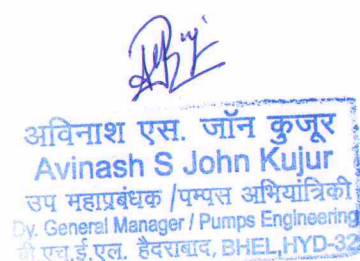 अविनाश एस. जॉन कुजूर
Avinash S John Kujur
उप महाप्रबंधक /पम्पस अभियांत्रिकी
Dy. General Manager / Pumps Engineering
बी.एच.ई.एल. हैदराबाद, BHEL,HYD-32